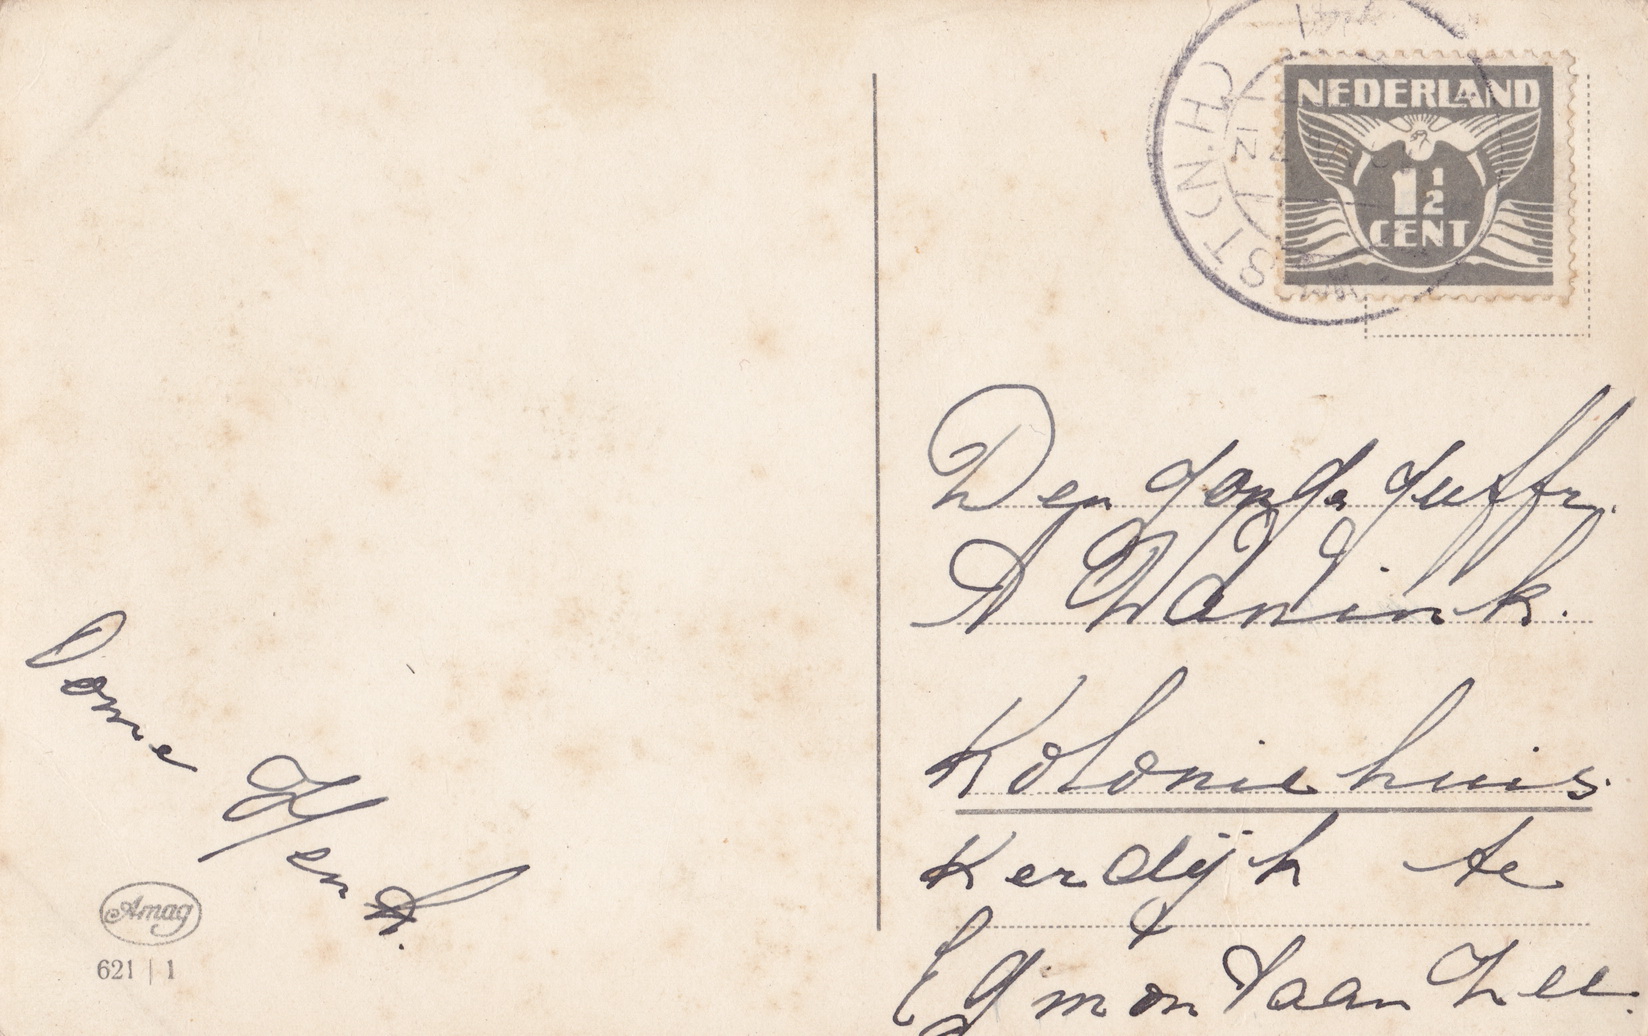 NEDERLAND
1 1/2
CENT
ST (N.H.)
Den Jonge Juffr.
A Wanink.
Koloniehuis.
Kerdijk te
Egmon Taan Zee.
Oome
Henk.
Amag
621 | 1